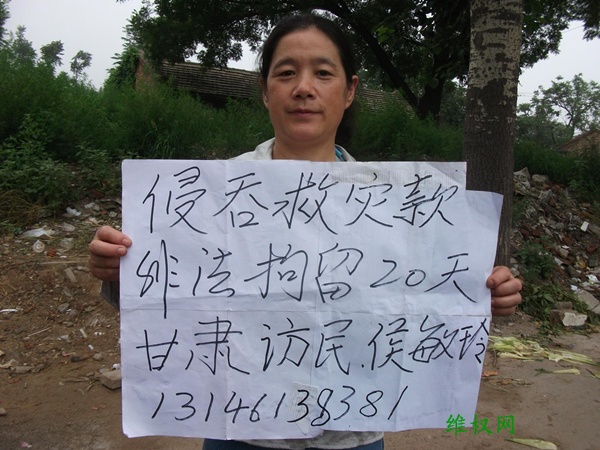 侵吞救灾款
非法拘留20天
甘肃访民.侯敏玲
13146138381
维权网